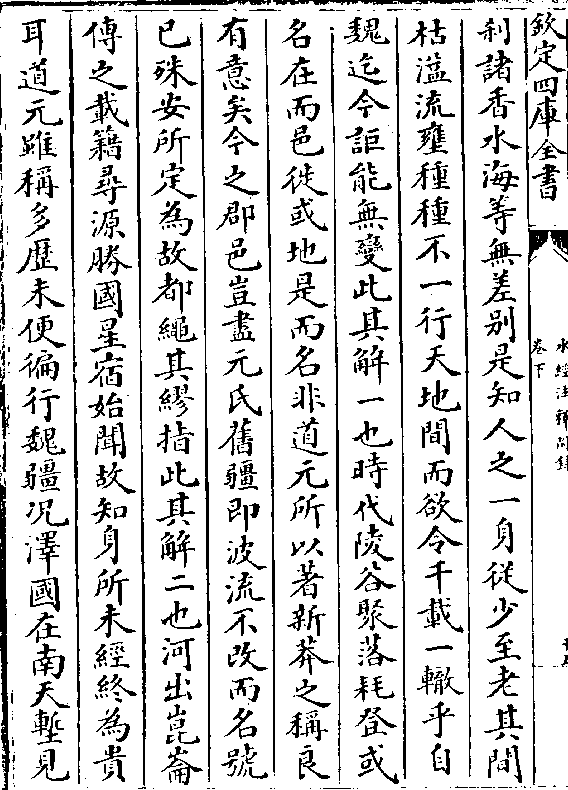 欽定四庫全書
水經注釋附錄
卷下
利諸香水海等無差别是知人之一身從少至老其間
枯溢流壅種種不一行天地間而欲令千載一轍乎自
魏迄今詎能無變此其解一也時代陵谷聚落耗登或
名在而邑徙或地是而名非道元所以著新莽之稱良
有意矣今之郡邑豈盡元氏舊疆即波流不改而名號
已殊安所定為故都繩其繆指此其解二也河出崑崙
傳之載籍尋源勝國星宿始聞故知身所未經終為貴
耳道元雖稱多歷未便徧行魏疆况澤國在南天塹見